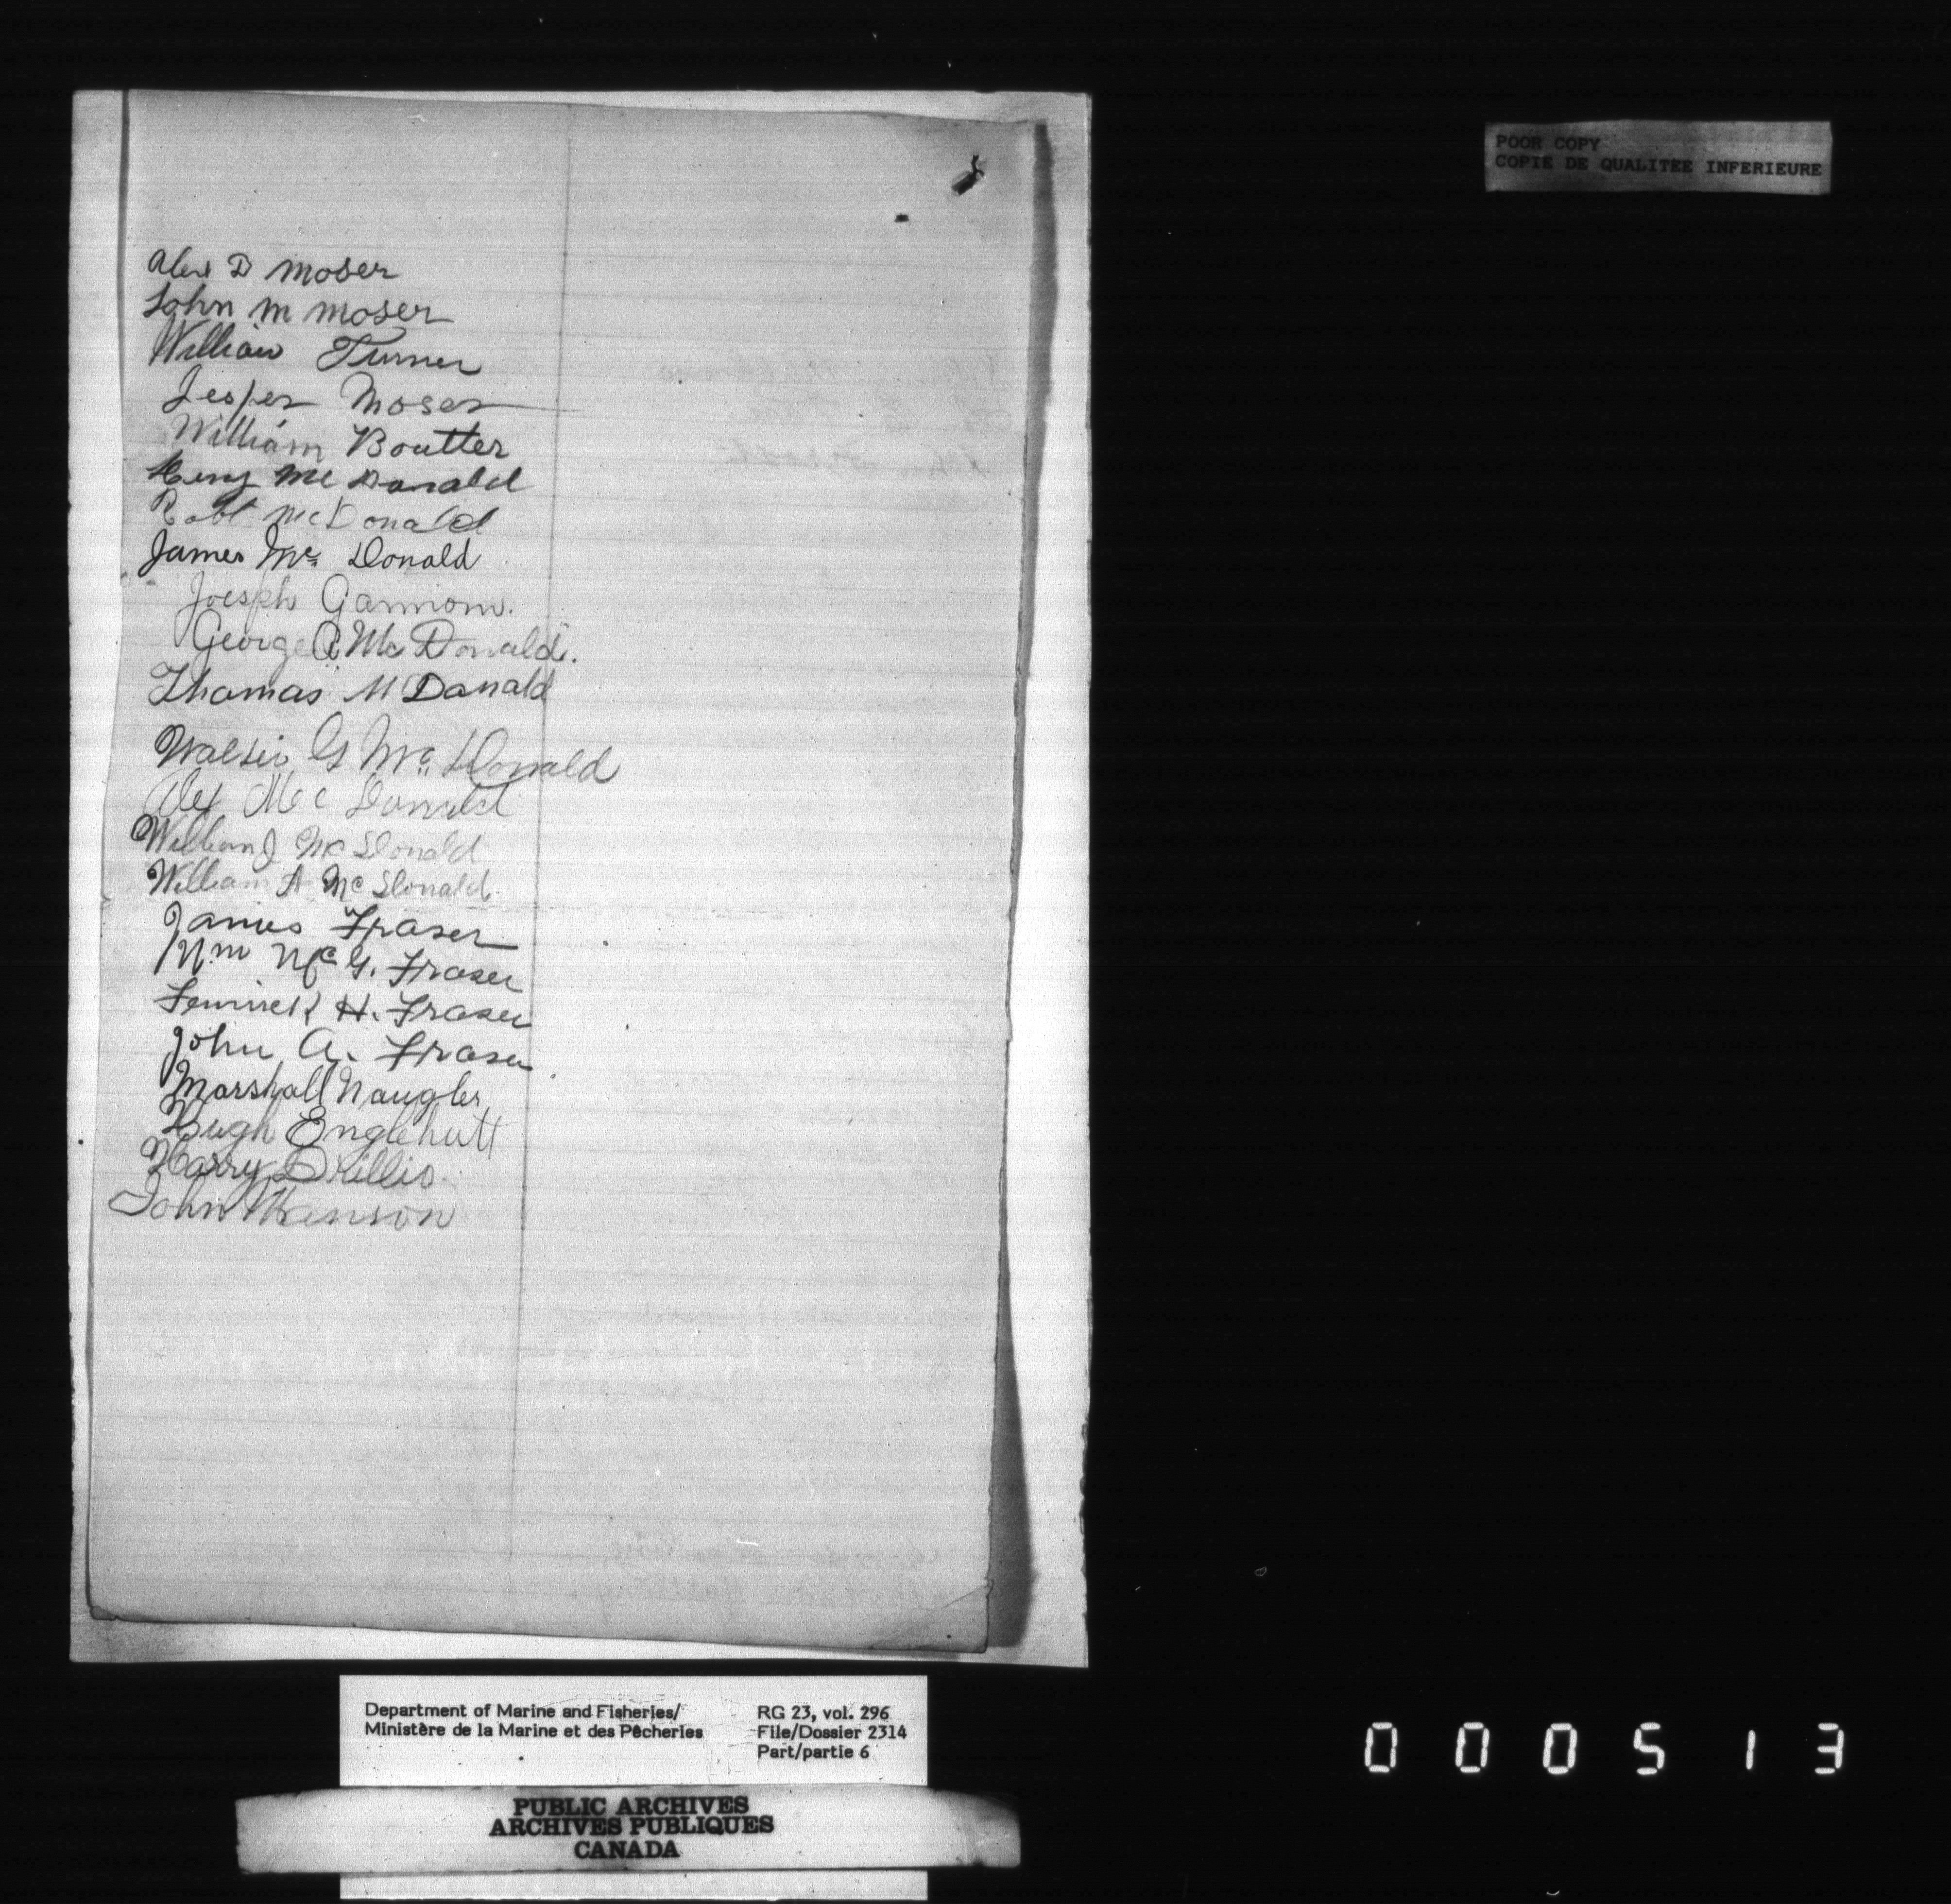 POOR COPY
COPIE DE QUALITEE INFERIEURE
Alex D Moser
John M Moser
William Turner
Jesper Moser
William Boutter
Heny Mc Donald
Robt McDonald
James Mc Donald
Joesph Gammom.
George A Mc Donald.
Thomas McDanald
Walter G Mc Donald
Alex Mc Donald
William J Mc Donald
William A Mc Donald
James Fraser
Wm McG. Fraser
Fenwick H. Fraser
John A. Fraser
Marshall Naugler
Hugh Englehutt
Harry Drillio
John Manson
Department of Marine and Fisheries/
Ministère de la Marine et des Pêcheries
RG 23, vol. 296
File/Dossier 2314
Part/partie 6
PUBLIC ARCHIVES
ARCHIVES PUBLIQUES
CANADA
000513